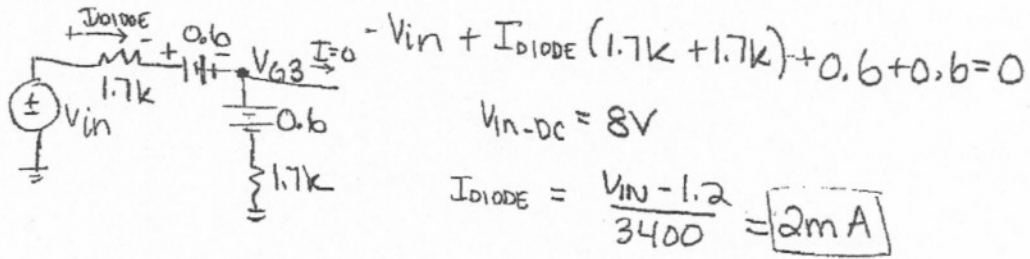 I_DIODE
+ -
+ 0.6 -
V_G3 I=0
1.7k
± Vin
0.6
1.7k
-Vin + I_DIODE (1.7k + 1.7k) + 0.6 + 0.6 = 0
V_IN-DC = 8V
I_DIODE = V_IN - 1.2 / 3400 = 2mA